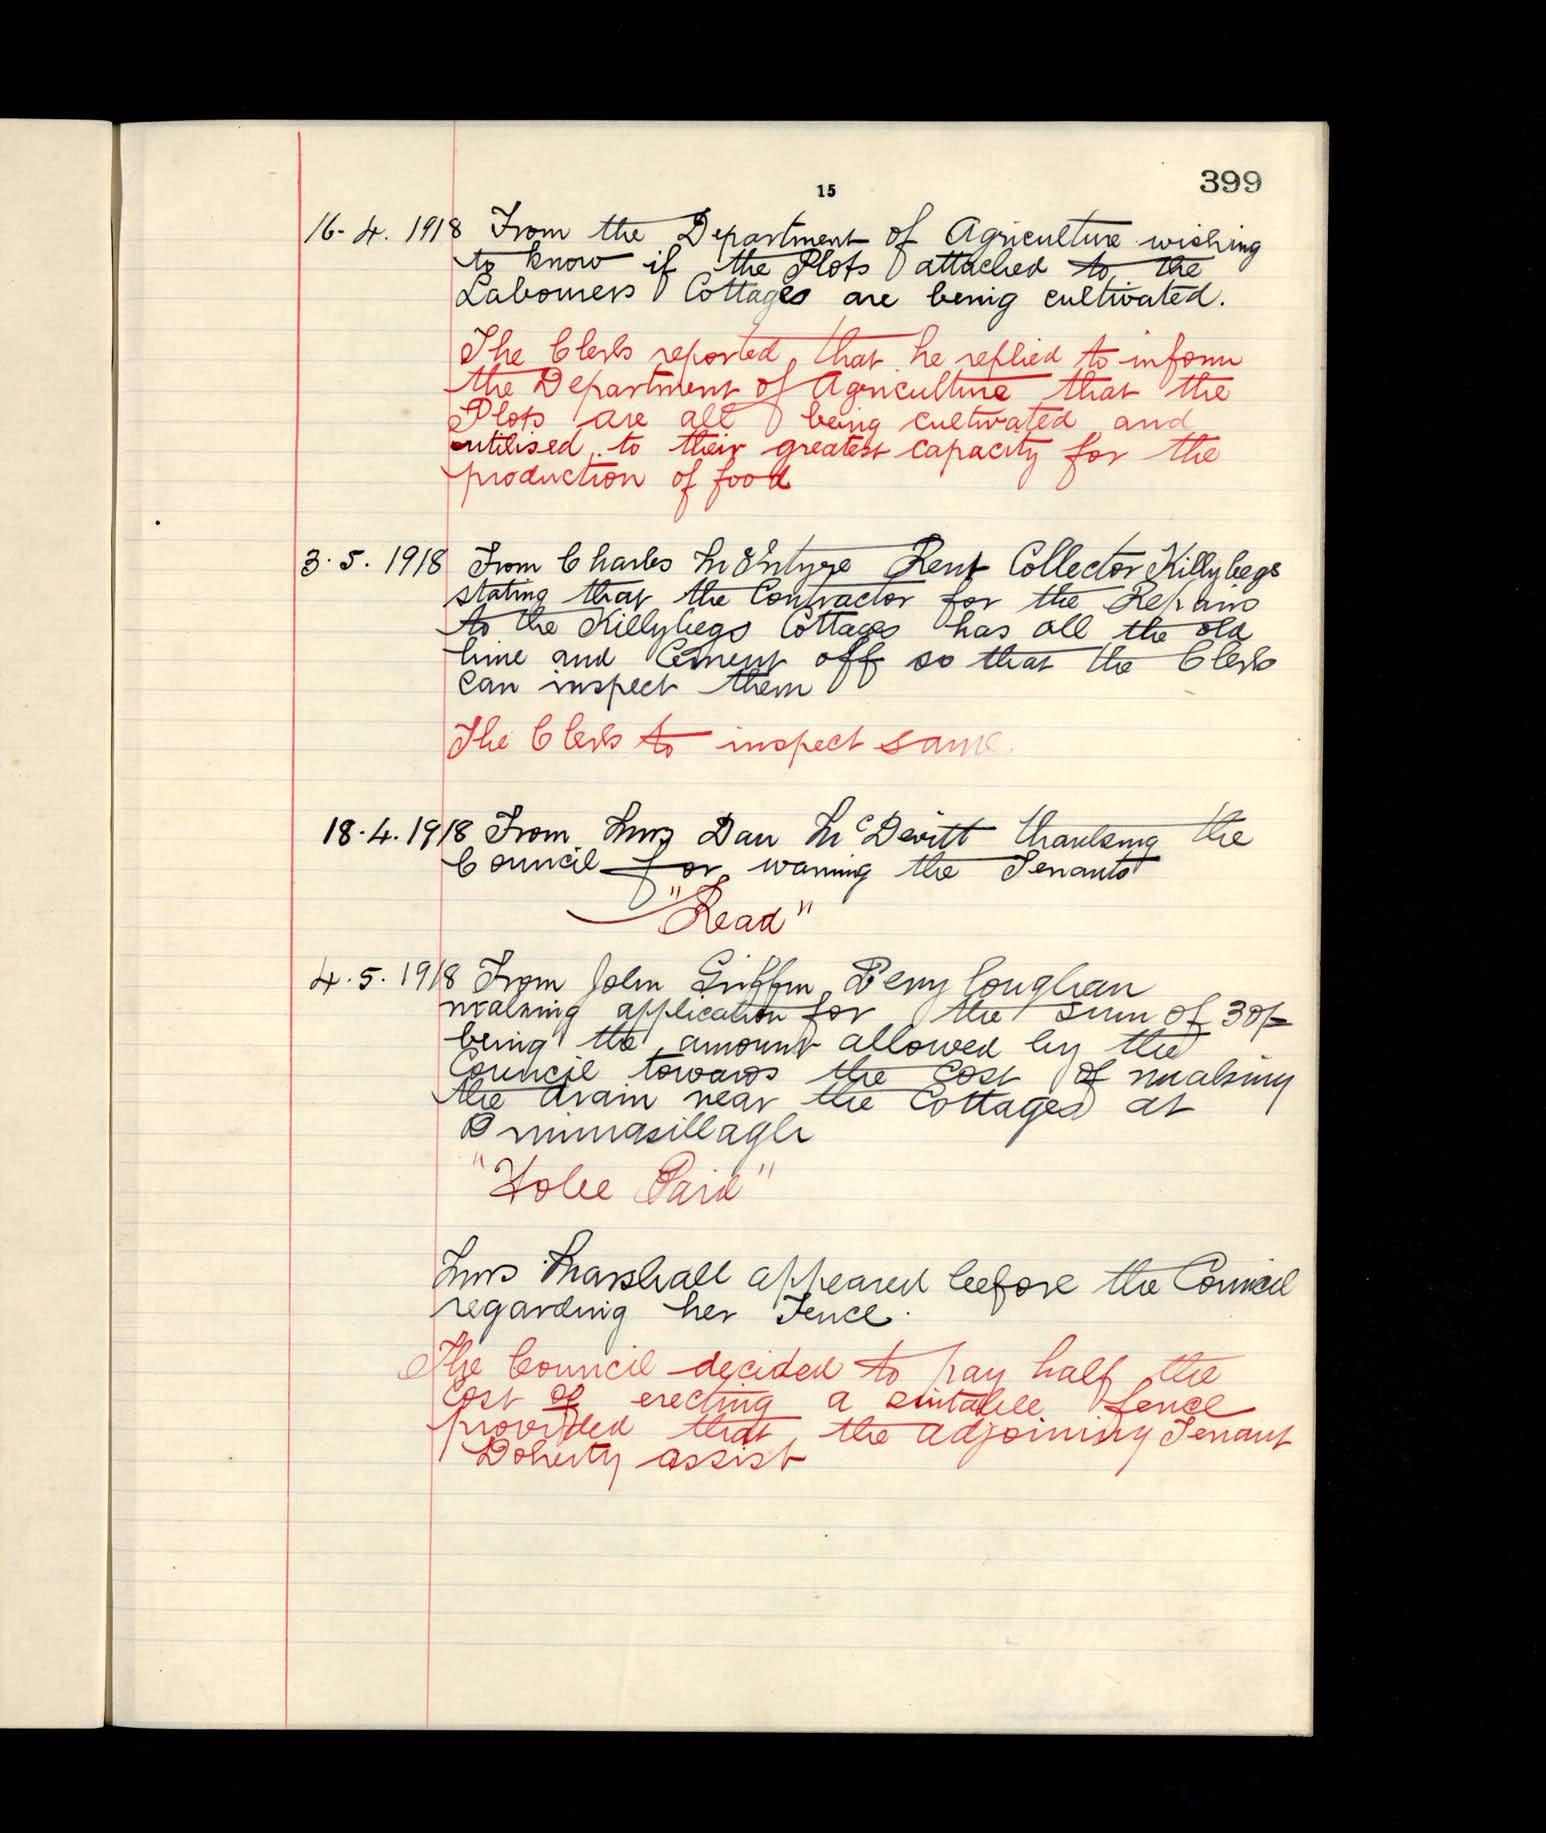 15
399
16-4. 1918 From the Department of Agriculture wishing
to know if the Plots attached to the
Labourers Cottages are being cultivated.
The Clerk reported that he replied to inform
the Department of Agriculture that the
Plots are all being cultivated and
utilised to their greatest capacity for the
production of food
3. 5. 1918 From Charles McIntyre Rent Collector Killybegs
stating that the Contractor for the Repairs
to the Killybegs Cottages has all the old
lime and Cement off so that the Clerk
can inspect them
The Clerk to inspect same.
18.4.1918 From Mrs Dan McDevitt thanking the
Council for warning the Tenants
"Read"
4.5.1918 From John Griffin
making application for the sum of 30/-
being the amount allowed by the
Council towards the cost of making
the drain near the Cottages at
"To be Paid"
Mrs Marshall appeared before the Council
regarding her Fence.
The Council decided to pay half the
cost of erecting a suitable fence
provided that the adjoining Tenant
Doherty assist